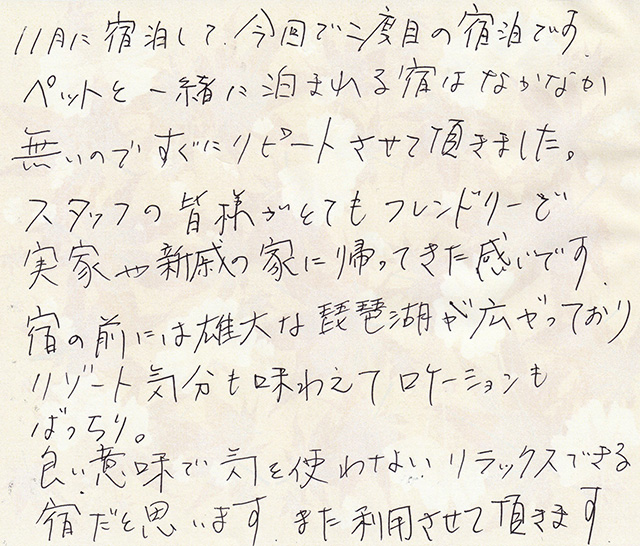 11月に宿泊して、今回で二度目の宿泊です。
ペットと一緒に泊まれる宿はなかなか
無いのですぐにリピートさせて頂きました。
スタッフの皆様がとてもフレンドリーで
実家や新戚の家に帰ってきた感いです。
宿の前には雄大な琵琶湖が広がっており
リゾート気分も味わえてロケーションも
ばっちり。
良い意味で気を使わないリラックスできる
宿だと思います。また利用させて頂きます。